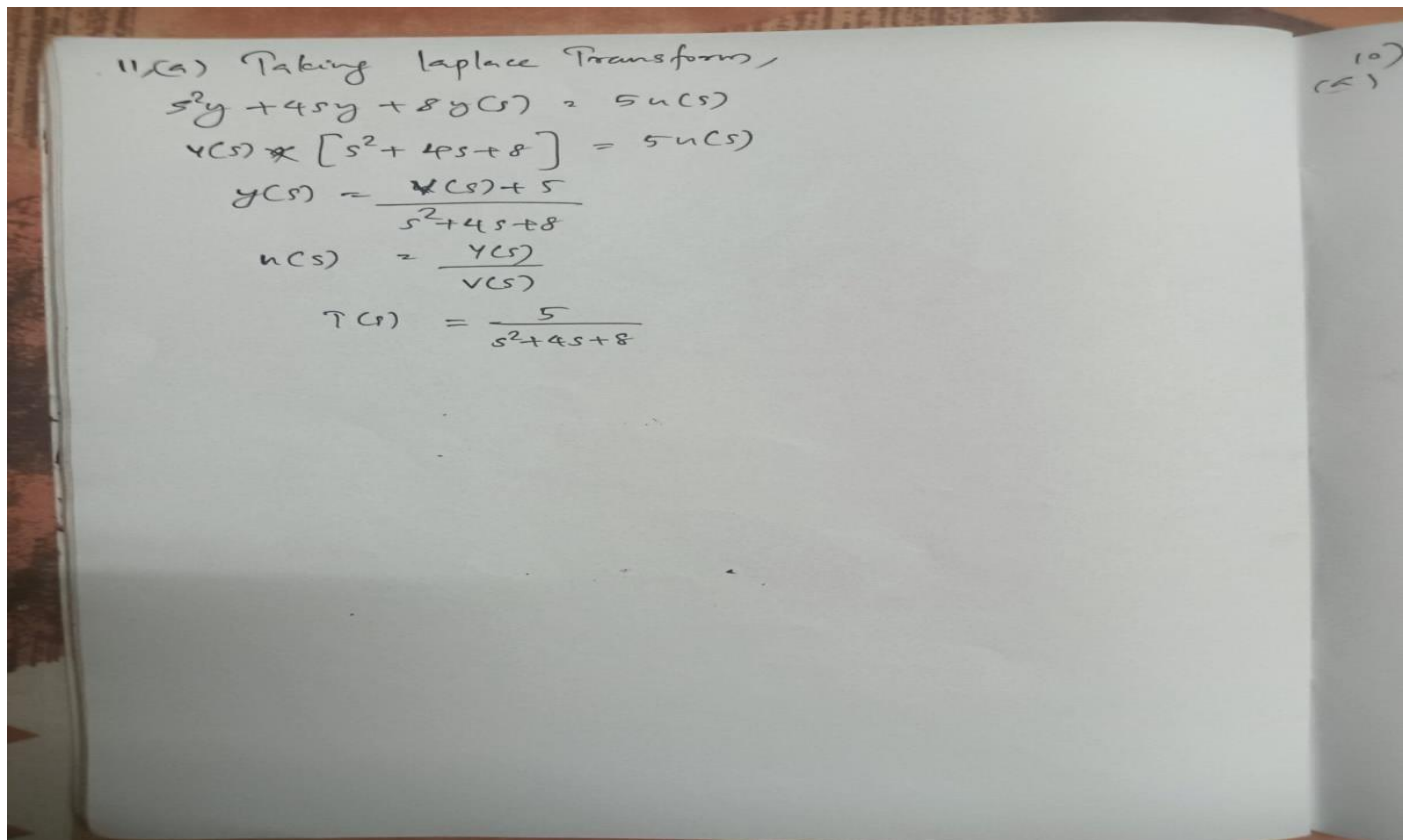 11,(a) Taking laplace Transform,
s²y + 4sy + 8y(s) = 5u(s)
Y(s) [s² + 4s + 8] = 5u(s)
y(s) = V(s) + 5 / s² + 4s + 8
n(s) = Y(s) / V(s)
T(s) = 5 / s² + 4s + 8
10)